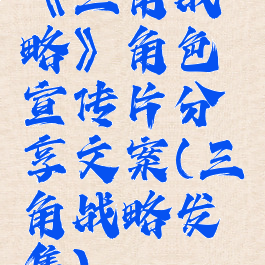 《三角战
略》角色
宣传片分
享文案(三
角战略发
售)